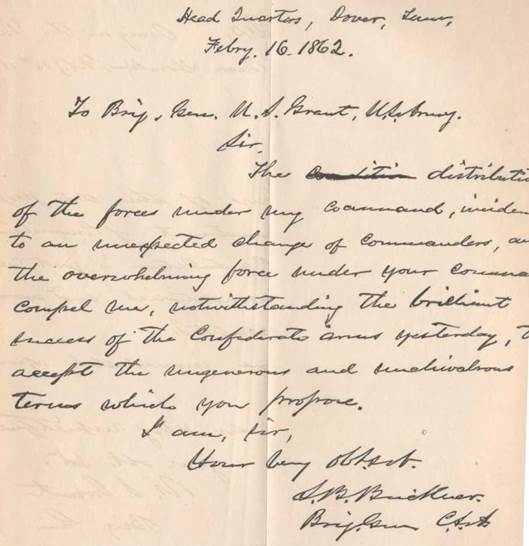 Head Quarters, Dover, Tenn,
Febry. 16. 1862.
To Brig, Gen. U. S. Grant, U.S. Army.
Sir,
The condition distributi
of the forces under my command, incide
to an unexpected change of commanders, an
the overwhelming force under your comma
compel me, notwithstanding the brilliant
success of the Confederate arms yesterday, t
accept the ungenerous and unchivalrous
terms which you propose.
I am, sir,
Your very obt. sevt.
S. B. Buckner.
Brig. Gen C.S.A